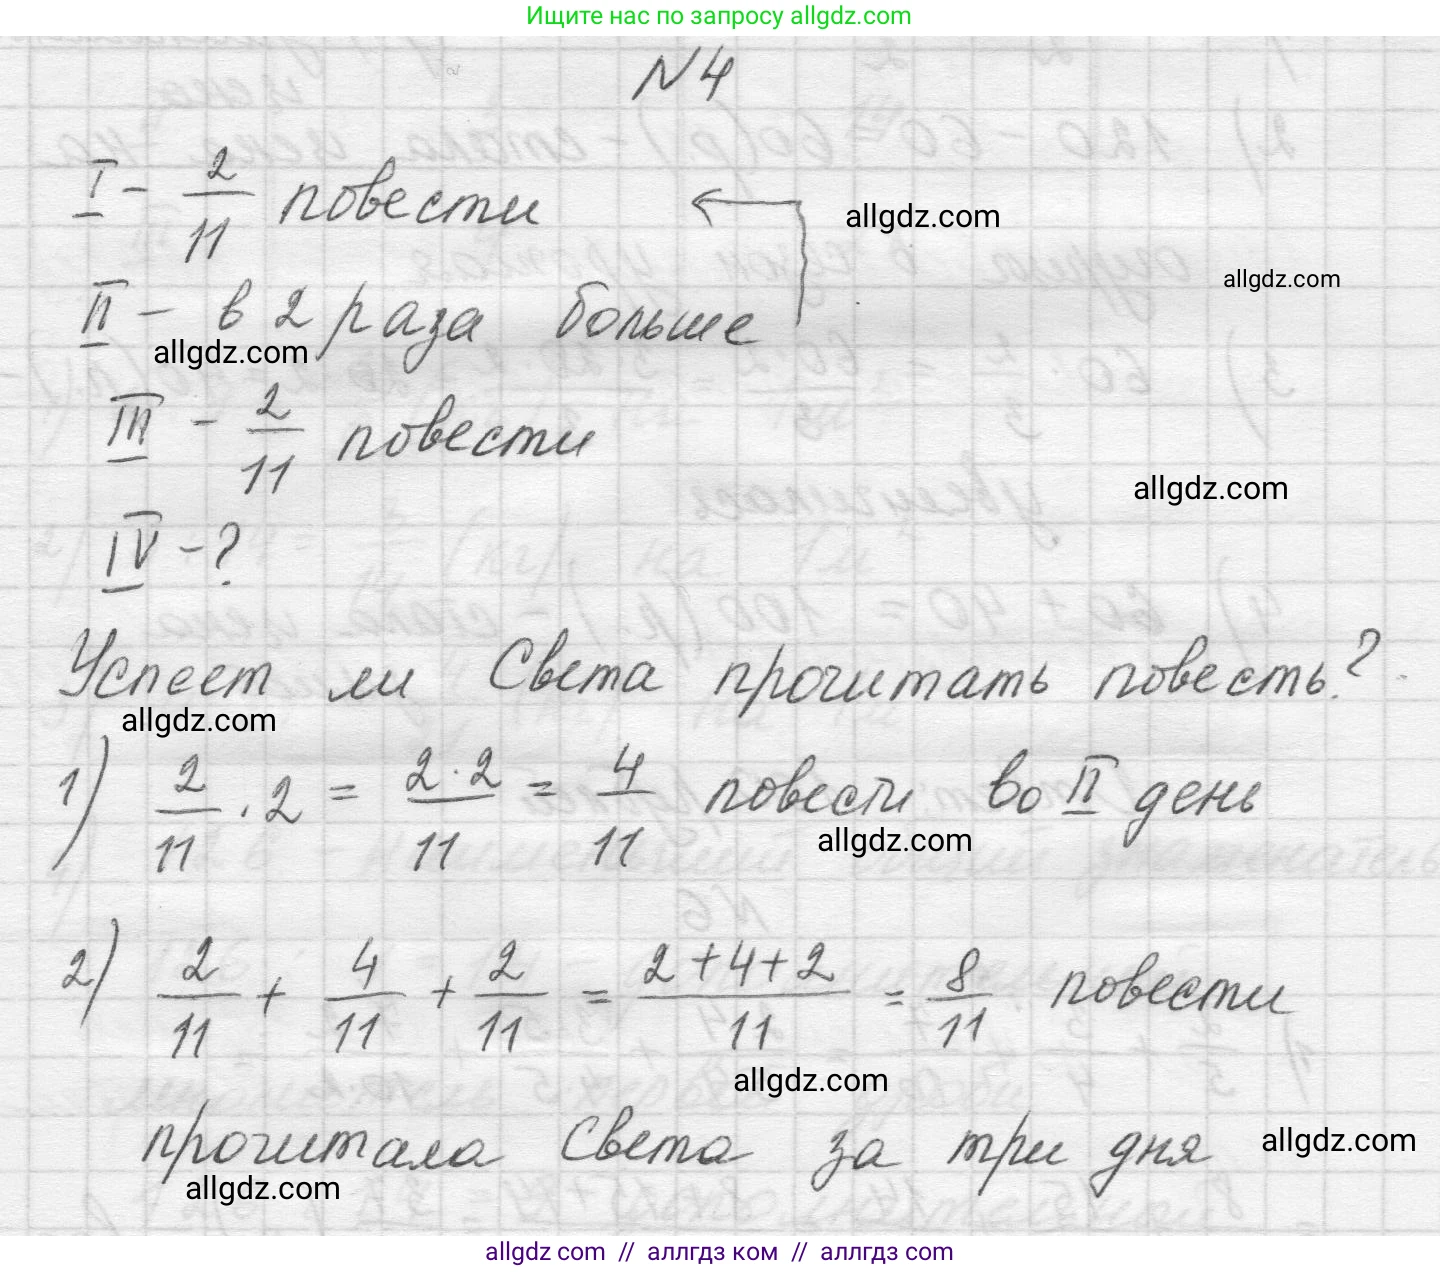 Ищите нас по запросу allgdz.com
№4
I - 2/11 повести
allgdz.com
allgdz.com
II - в 2 раза больше
allgdz.com
III - 2/11 повести
allgdz.com
IV - ?
Успеет ли Света прочитать повесть?
allgdz.com
1) 2/11 · 2 = 2·2/11 = 4/11 повести во II день
allgdz.com
2) 2/11 + 4/11 + 2/11 = 2+4+2/11 = 8/11 повести
allgdz.com
прочитала Света за три дня
allgdz.com
allgdz.com
allgdz com // аллгдз ком // аллгдз com